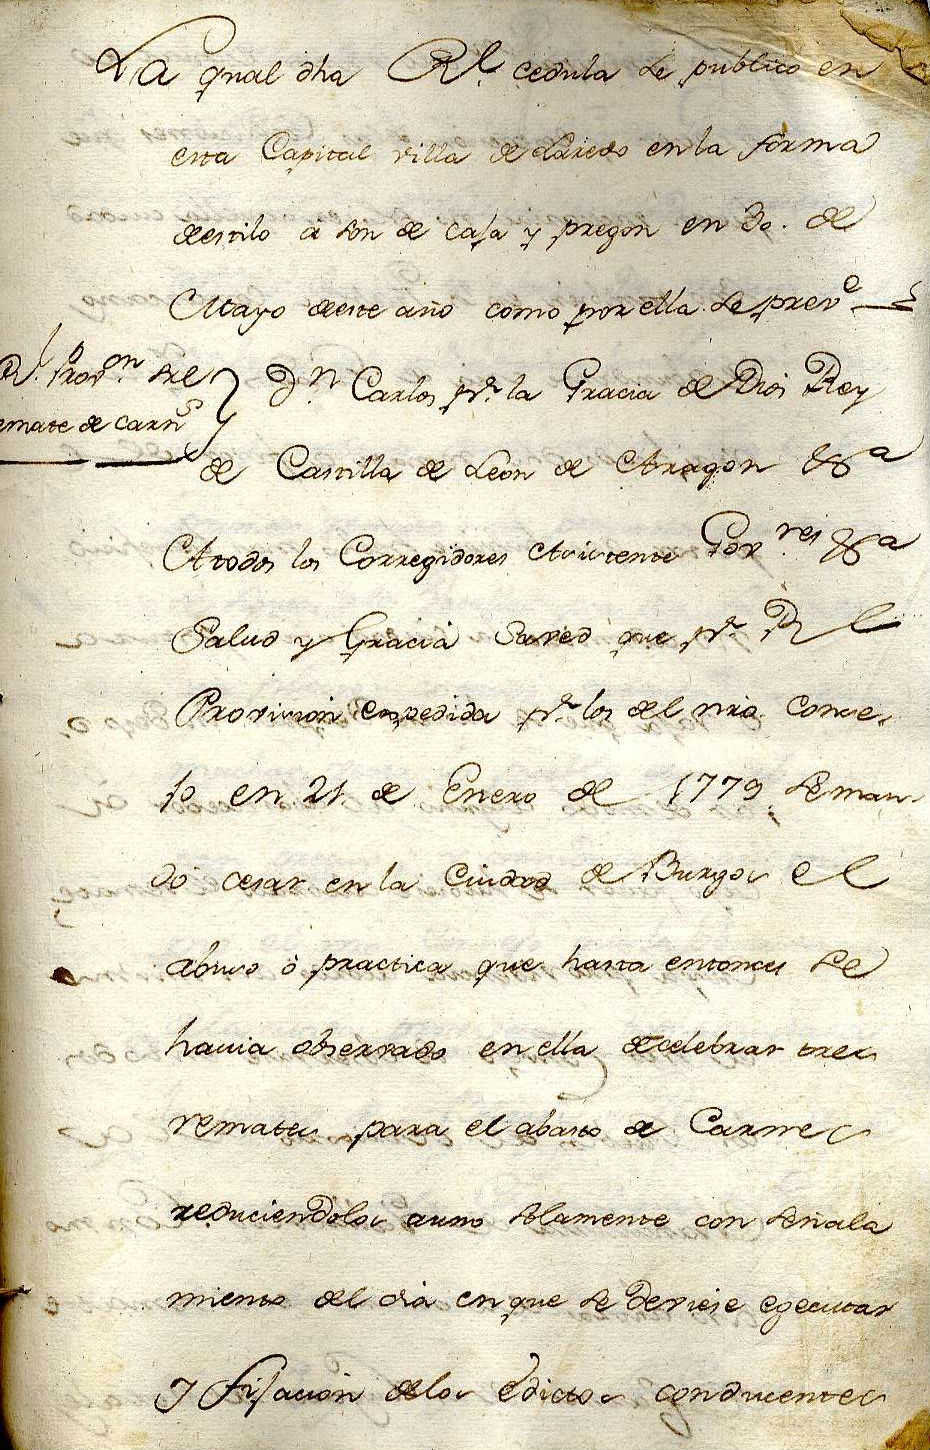 La qual dha Rl. cedula se publico en
esta Capital villa de Laredo en la forma
de estilo a son de caja y pregon en 30. de
Mayo deeste año como por ella se preve
Rl. Provon. sre
remate de carns
Dn Carlos pr. la Gracia de Dios Rey
de Castilla de Leon de Aragon &a
A todos los Corregidores Asistente Govres &a
Salud y Gracia Saved que pr. Rl
Provision expedida pr. los del nro. Conse-
jo en 21. de Enero de 1779 se man-
dó cesar en la Ciudad de Burgos el
abuso ò practica que hasta entonces se
havia observado en ella de celebrar tres
remates para el abasto de Carnes
reduciendolos a uno solamente con señala
miento del dia en que se deviese egecutar
y fijacion delos Edictos conducentes